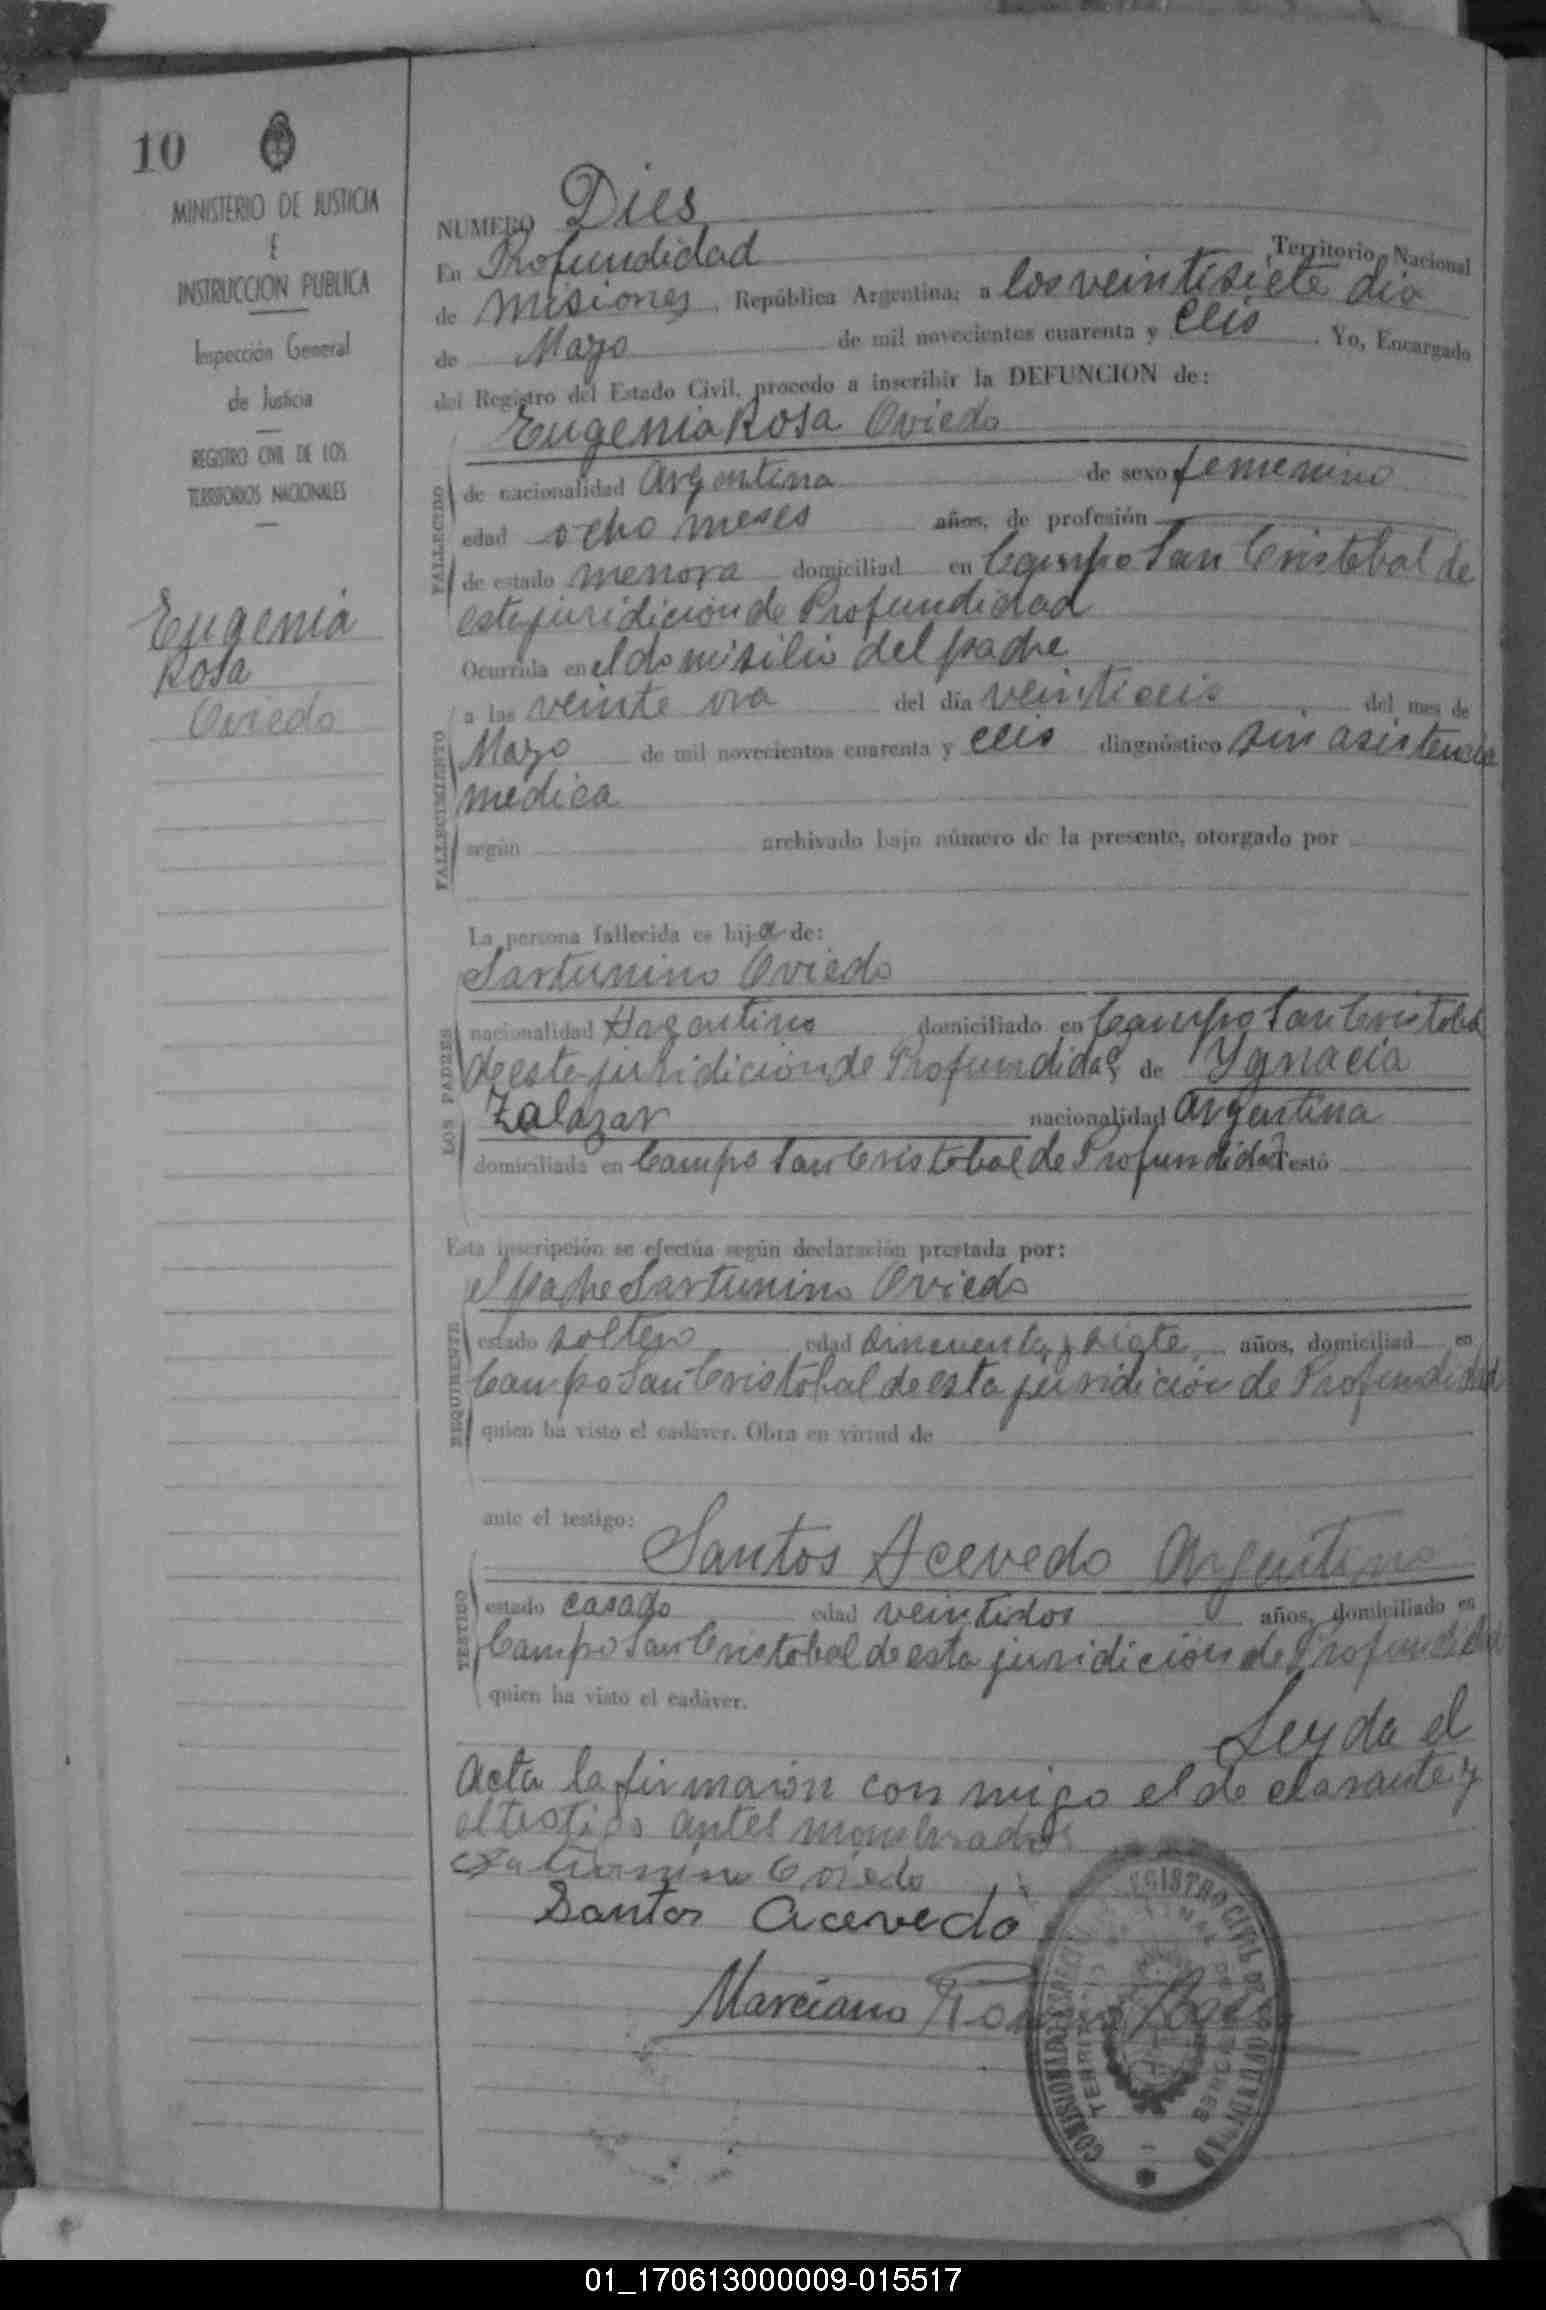 10
MINISTERIO DE JUSTICIA
E
INSTRUCCION PUBLICA
Inspección General
de Justicia
REGISTRO CIVIL DE LOS
TERRITORIOS NACIONALES
Eugenia
Rosa
Oviedo
NUMERO Dies
En Profundidad Territorio Nacional
de Misiones, República Argentina, a los veintisiete dia
de Mayo de mil novecientos cuarenta y ceis. Yo, Encargado
del Registro del Estado Civil, procedo a inscribir la DEFUNCION de:
Eugenia Rosa Oviedo
FALLECIDO
de nacionalidad Argentina de sexo femenino
edad ocho meses años, de profesión
de estado menora domiciliad en Campo San Cristobal de
este juridicion de Profundidad
Ocurrida en el domisilio del padre
FALLECIMIENTO
a las veinte ora del día veinticeis del mes de
Mayo de mil novecientos cuarenta y ceis diagnóstico sin asistencia
medica
según archivado bajo número de la presente, otorgado por
La persona fallecida es hija de:
Sartunino Oviedo
LOS PADRES
nacionalidad Argentino domiciliado en Campo San Cristobal
de este juridicion de Profundidad y de Ygnacia
Zalazar nacionalidad Argentina
domiciliada en Campo San Cristobal de Profundidad Testó
Esta inscripción se efectúa según declaración prestada por:
el padre Sartunino Oviedo
REQUIRENTE
estado soltero edad sincuenta y siete años, domiciliad en
Campo San Cristobal de esta juridicion de Profundidad
quien ha visto el cadáver. Obra en virtud de
ante el testigo:
Santos Acevedo Argentino
TESTIGO
estado casado edad veintidos años, domiciliado en
Campo San Cristobal de esta juridicion de Profundidad
quien ha visto el cadáver.
Leyda el
Acta la firmaron con migo el de clarante y
el testigo antes monbrados
Saturnino Oviedo
Santos Acevedo
Marciano
REGISTRO CIVIL DE PROFUNDIDAD
01_170613000009-015517